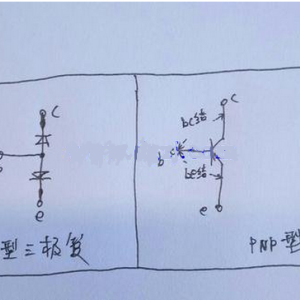 c
e
型三极管
c
bc结
b
be结
e
PNP型